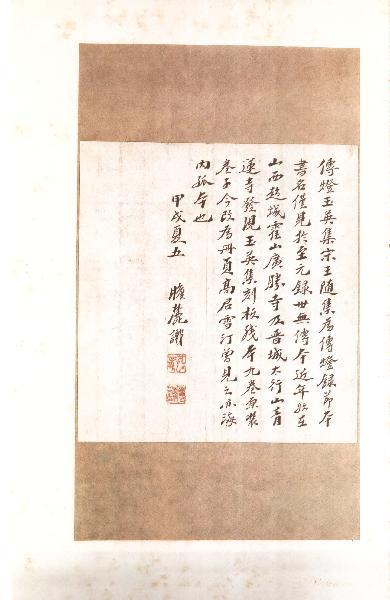 傳燈玉英集宋王隨集為傳燈録節本
書名僅見於至元録世無傳本近年始在
山西趙城霍山廣勝寺及晋城太行山青
蓮寺發現玉英集刻板殘本九卷原裝
卷子今改為冊頁高君雪汀曾見之亦海
内孤本也
甲戌夏五